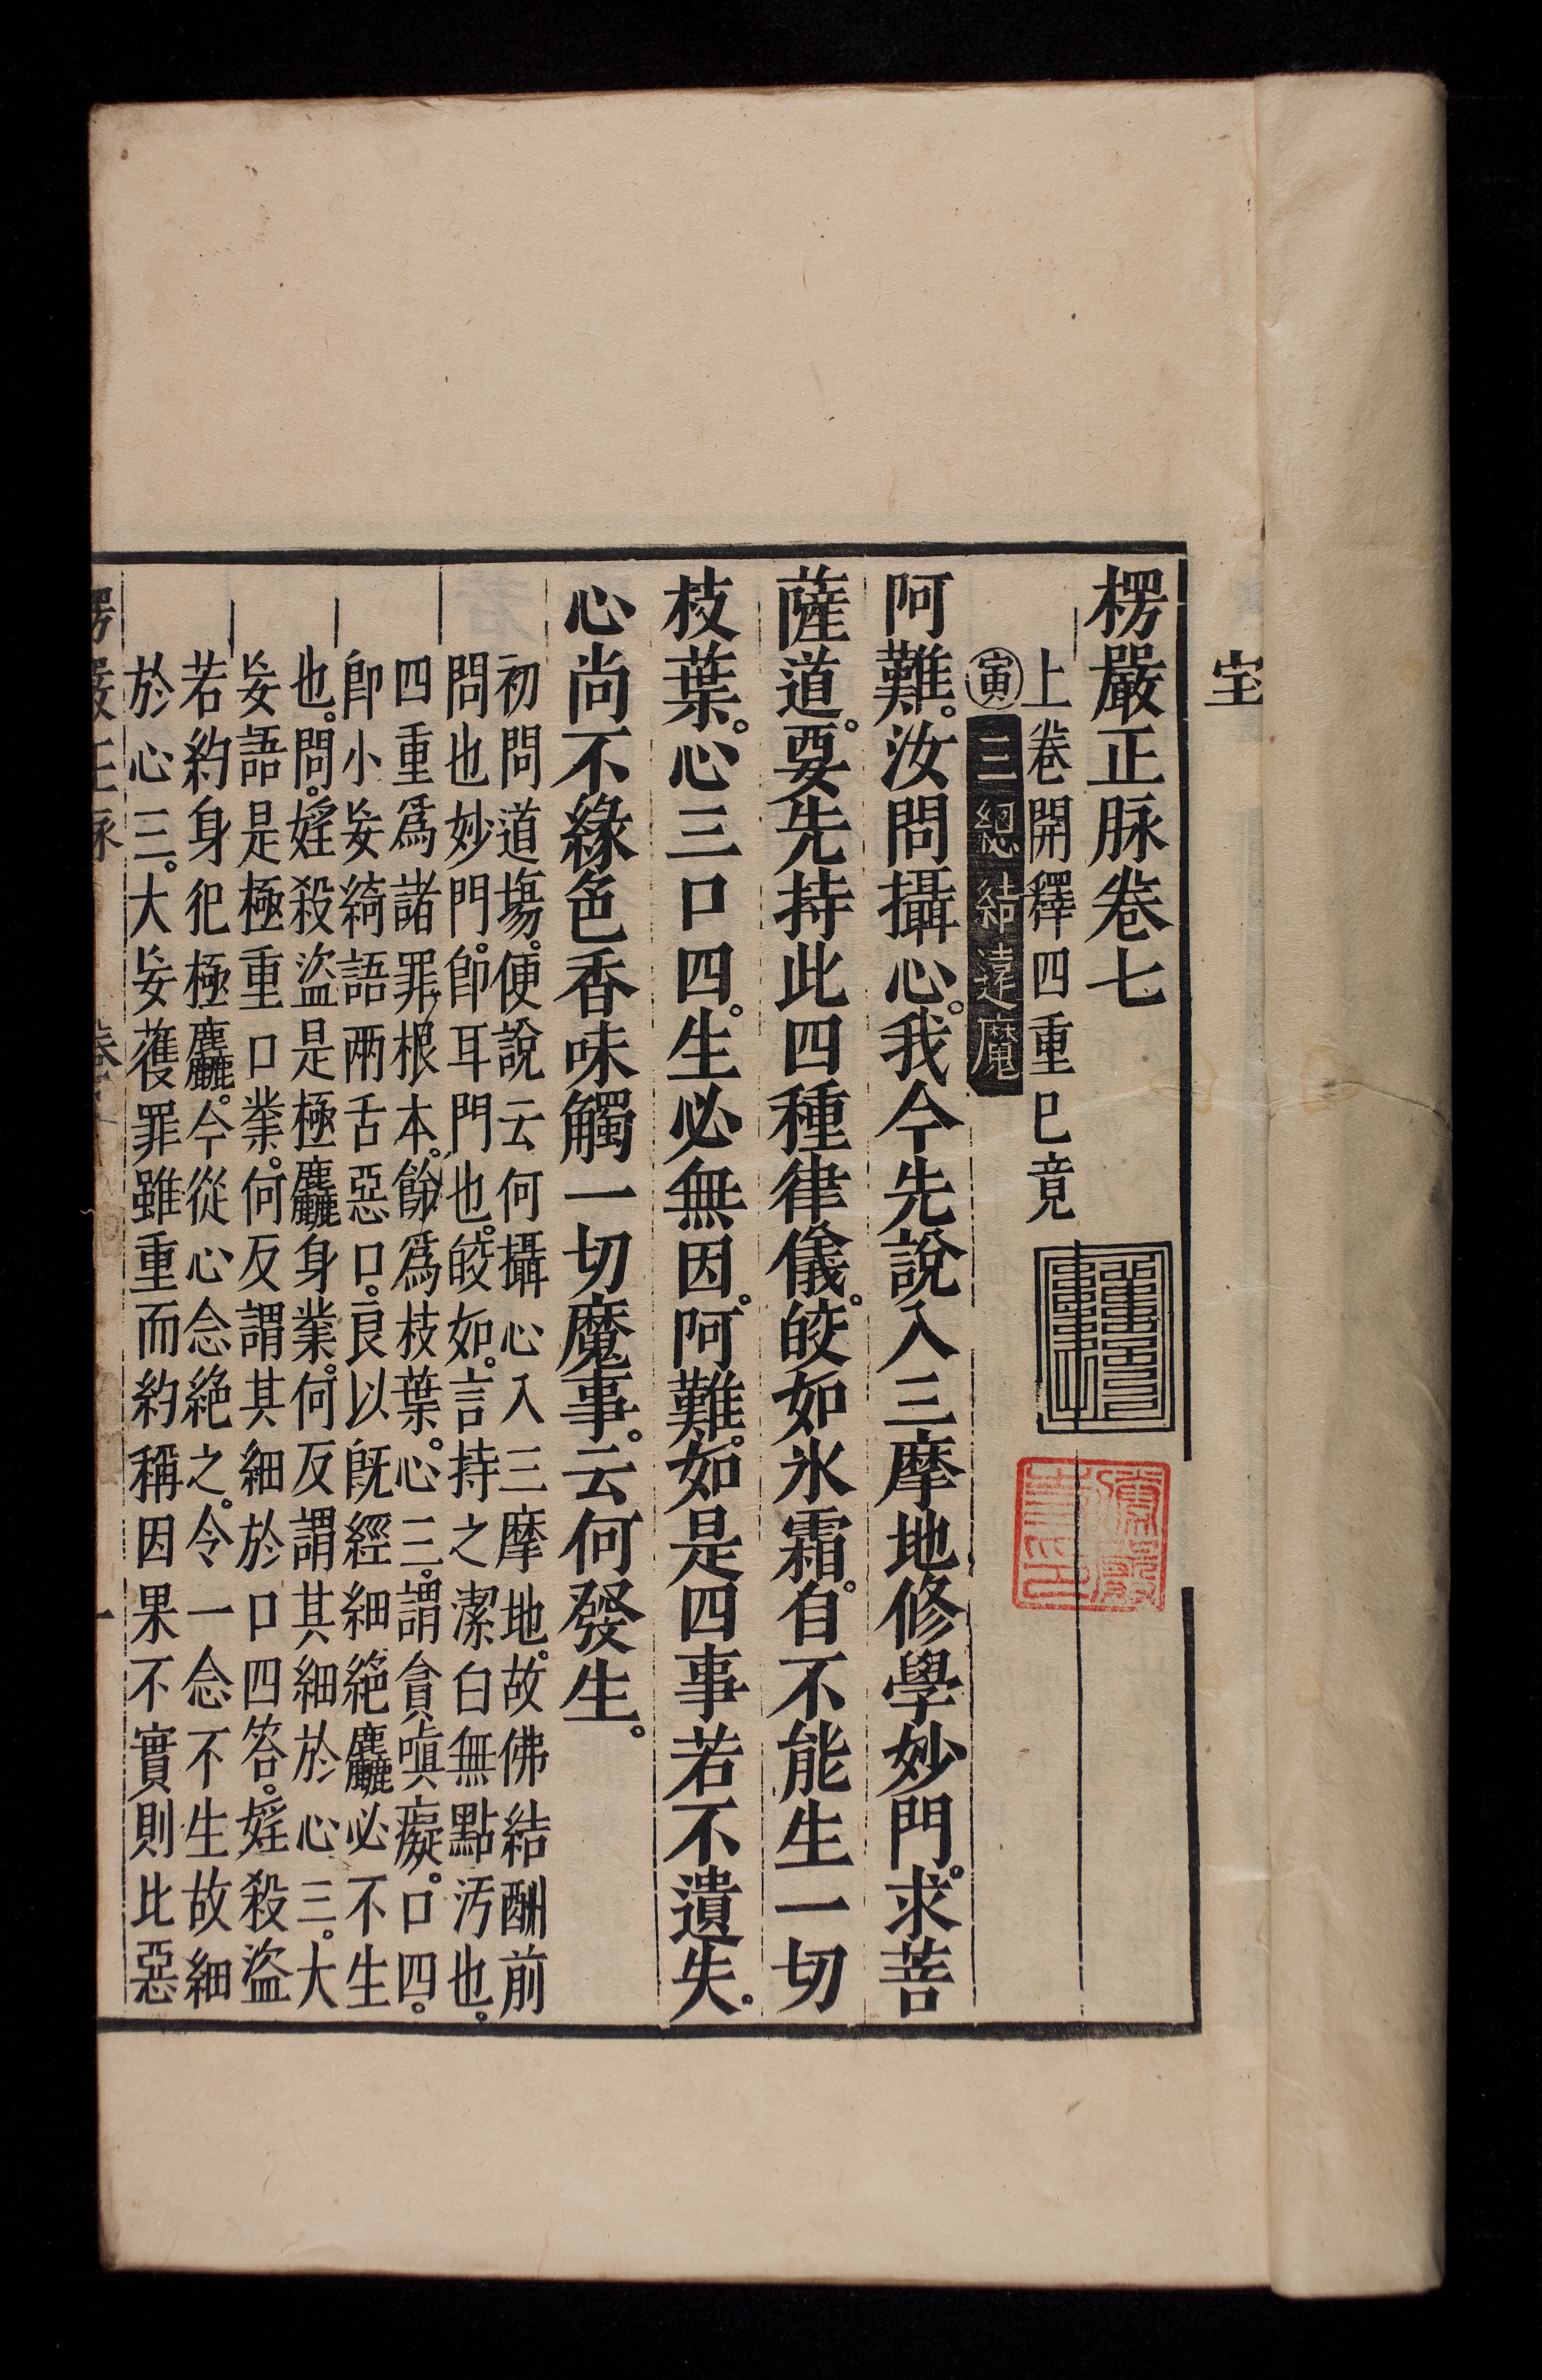 室
楞嚴正脉卷七
上卷開釋四重巳竟
寅三總結遠魔
阿難。汝問攝心。我今先說入三摩地修學妙門。求菩
薩道。要先持此四種律儀。皎如氷霜。自不能生一切
枝葉。心三口四。生必無因。阿難。如是四事若不遺失。
心尚不緣色香味觸一切魔事。云何發生。
初問道場。便說云何攝心入三摩地。故佛結酬前
問也妙門。卽耳門也。皎如。言持之潔白無點汚也。
四重爲諸罪根本。餘爲枝葉。心三。謂貪嗔癡。口四。
卽小妄綺語兩舌惡口。良以旣經細絕麤必不生
也。問。婬殺盜是極麤身業。何反謂其細於心三。大
妄語是極重口業。何反謂其細於口四答。婬殺盜
若約身犯極麤。今從心念絕之。令一念不生故細
於心三。大妄獲罪雖重而約稱因果不實則比惡
楞嚴正脉 卷七 一